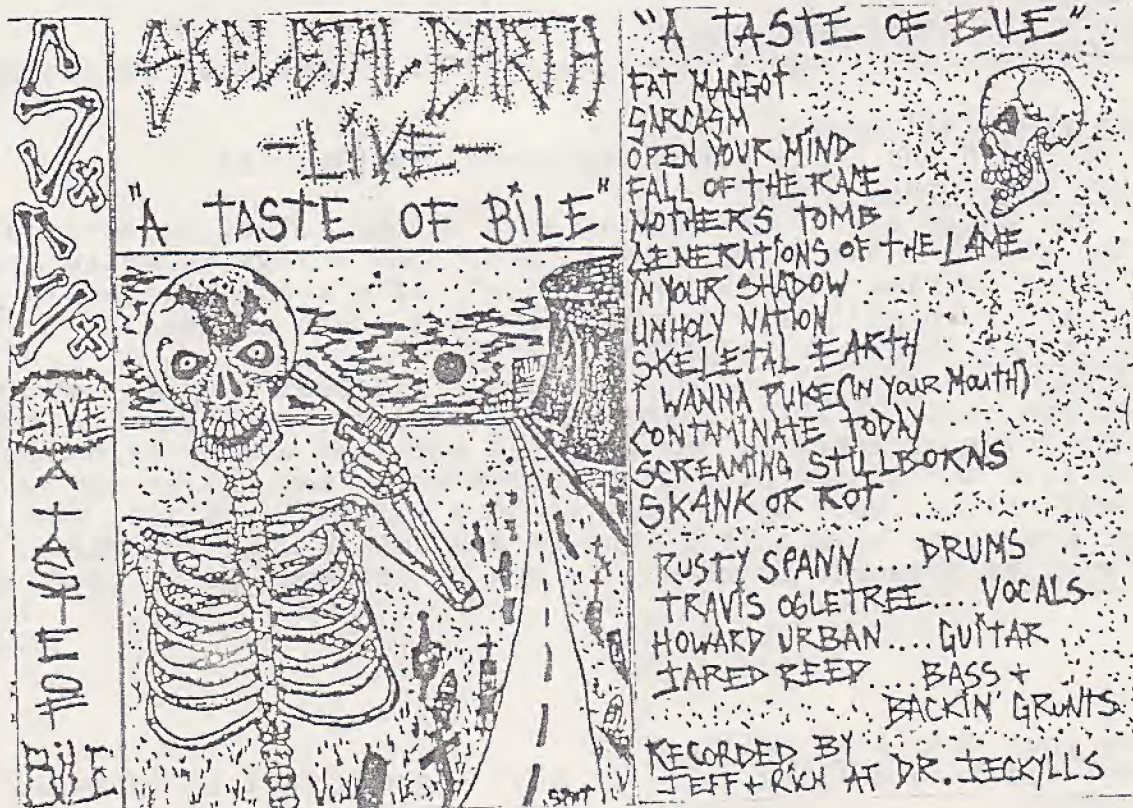 S.E.
LIVE
A TASTE OF
BILE
SKELETAL EARTH
-LIVE-
"A TASTE OF BILE"
"A TASTE OF BILE"
FAT MAGGOT
SARCASM
OPEN YOUR MIND
FALL OF THE RACE
MOTHERS TOMB
GENERATIONS OF THE LAME
IN YOUR SHADOW
UNHOLY NATION
SKELETAL EARTH
I WANNA PUKE (IN YOUR MOUTH)
CONTAMINATE TODAY
SCREAMING STILLBORNS
SKANK OR ROT
RUSTY SPANN.... DRUMS
TRAVIS OGLETREE.... VOCALS
HOWARD URBAN.... GUITAR
JARED REED.... BASS +
BACKIN' GRUNTS
RECORDED BY
JEFF + RICH AT DR. JECKYLL'S